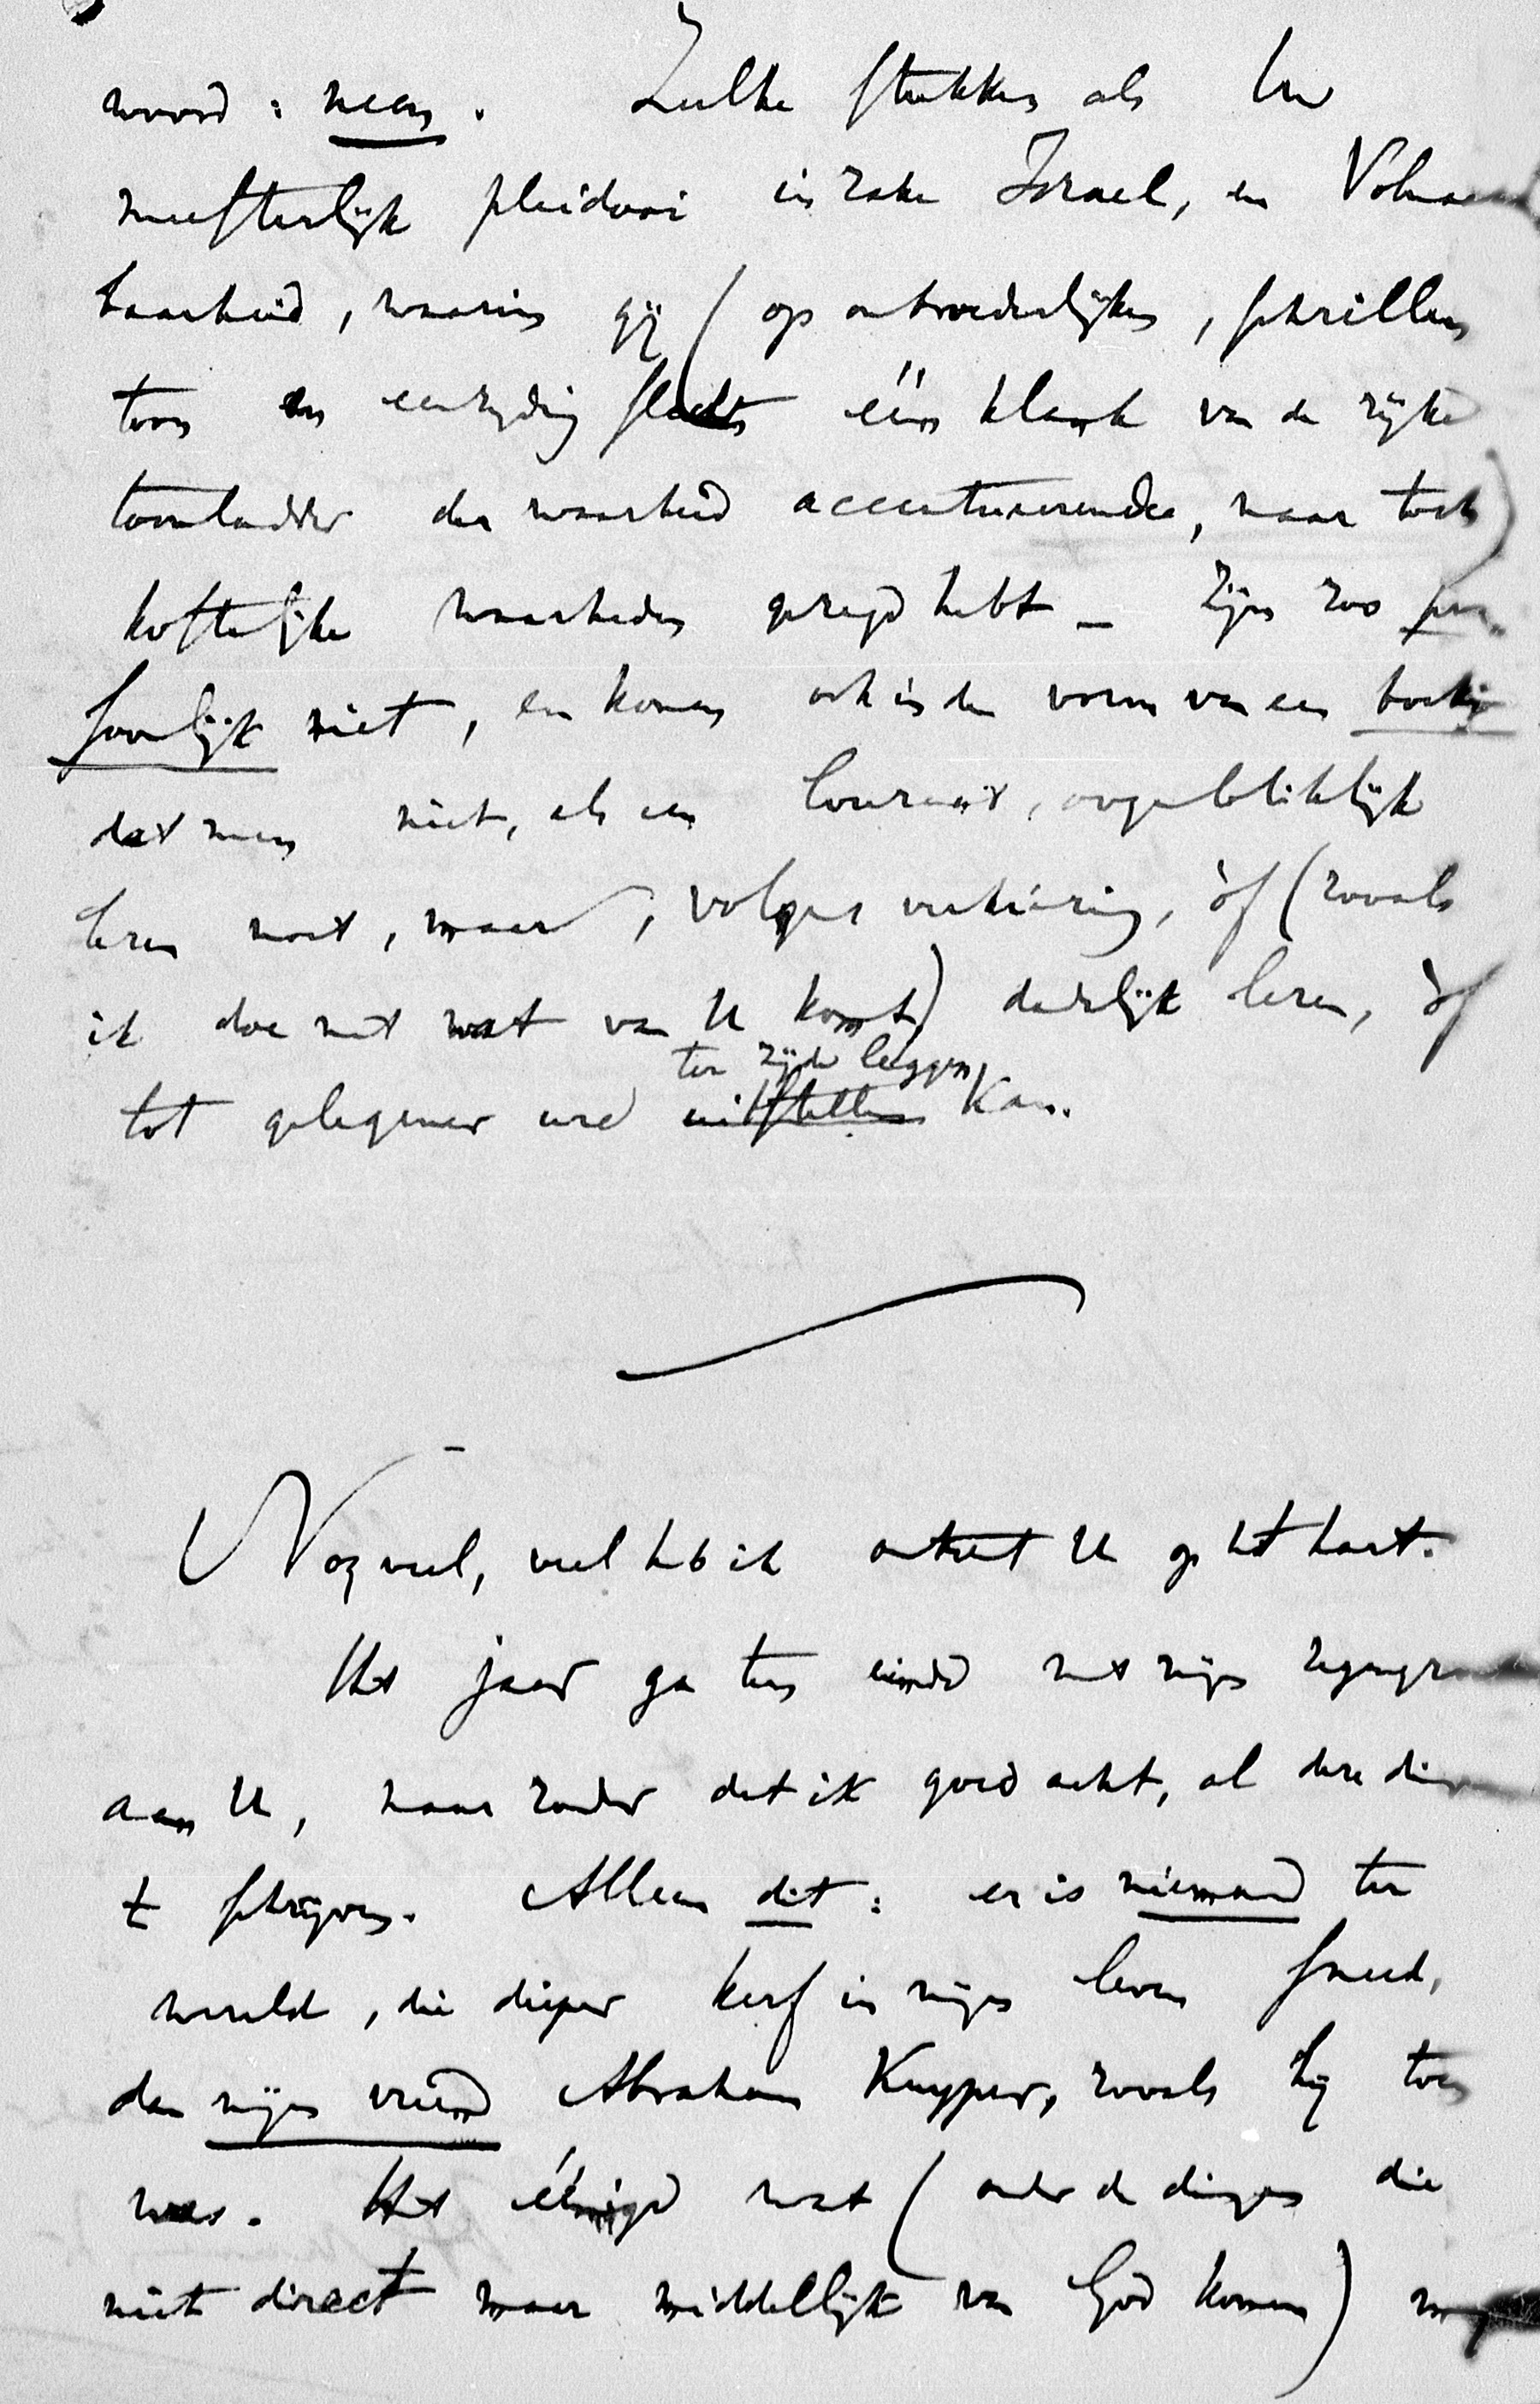 woord: neen. Zulke stukken als Uw
meesterlijk pleidooi in zake Israel, en Volmaakt
baarheid, waarin gij (op onbroederlijken, schrillen
toon en eenzijdig slechts één klank van de rijke
toonladder der waarheid accentueerende, maar toch)
kostelijke waarheden gezegd hebt — zijn zoo per-
soonlijk niet, en komen ook in den vorm van een boekje
dat men niet, als een Courant, oogenblikkelijk
lezen moet, maar, volgens verkiezing, òf (zooals
ik doe met wat van U komt) dadelijk lezen, òf
tot gelegener ure uitstellen ter zijde leggen kan.
Nog veel, veel heb ik omtrent U op het hart.
Het jaar ga ten einde met mijn zegengroet
aan U, maar zonder dat ik goed acht, al deze dingen
te schrijven. Alleen dit: er is niemand ter
wereld, die dieper kerf in mijn leven sneed,
dan mijn vriend Abraham Kuyper, zooals hij toen
was. Het éénige wat (onder de dingen die
niet direct maar middellijk van God komen) mij